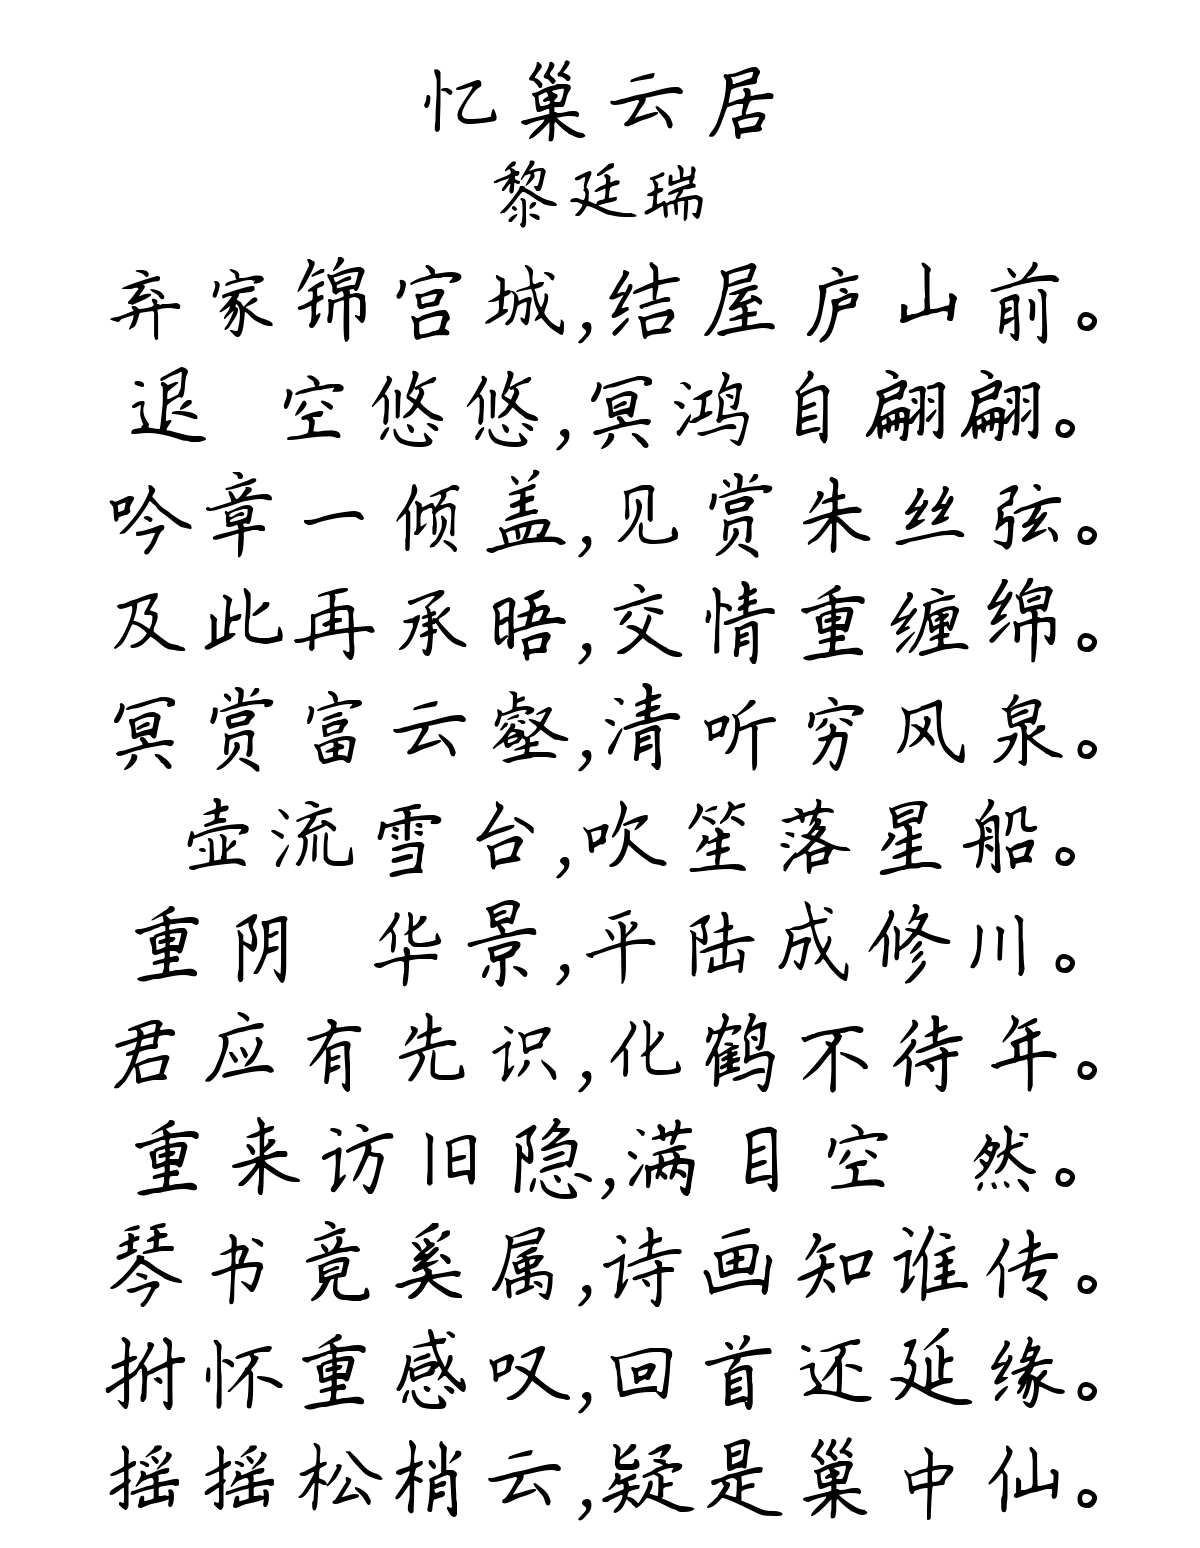 忆巢云居
黎廷瑞
弃家锦宫城,结屋庐山前。
退 空悠悠,冥鸿自翩翩。
吟章一倾盖,见赏朱丝弦。
及此再承晤,交情重缠绵。
冥赏富云壑,清听穷风泉。
壶流雪台,吹笙落星船。
重阴 华景,平陆成修川。
君应有先识,化鹤不待年。
重来访旧隐,满目空 然。
琴书竟奚属,诗画知谁传。
拊怀重感叹,回首还延缘。
摇摇松梢云,疑是巢中仙。